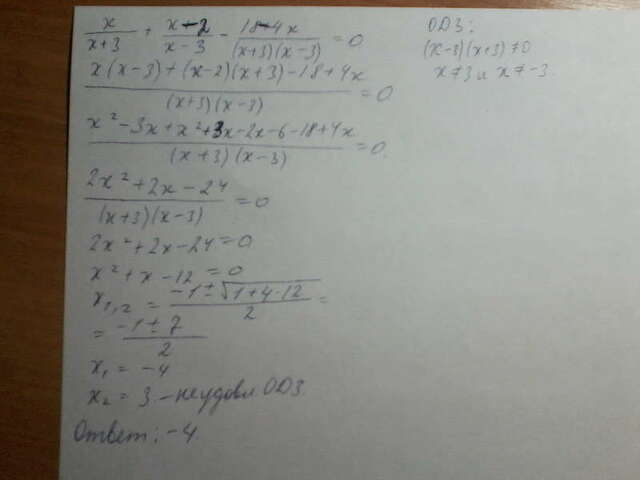 x/(x+3) + (x-2)/(x-3) - (18-4x)/((x+3)(x-3)) = 0
ОДЗ:
(x-3)(x+3)≠0
x≠3 и x≠-3.
(x(x-3)+(x-2)(x+3)-18+4x)/((x+3)(x-3)) = 0
(x²-3x+x²+3x-2x-6-18+4x)/((x+3)(x-3)) = 0.
(2x²+2x-24)/((x+3)(x-3)) = 0
2x²+2x-24=0
x²+x-12=0
x₁,₂ = (-1±√(1+4·12))/2 =
= (-1±7)/2
x₁ = -4
x₂ = 3 - неудовл ОДЗ.
Ответ: -4.